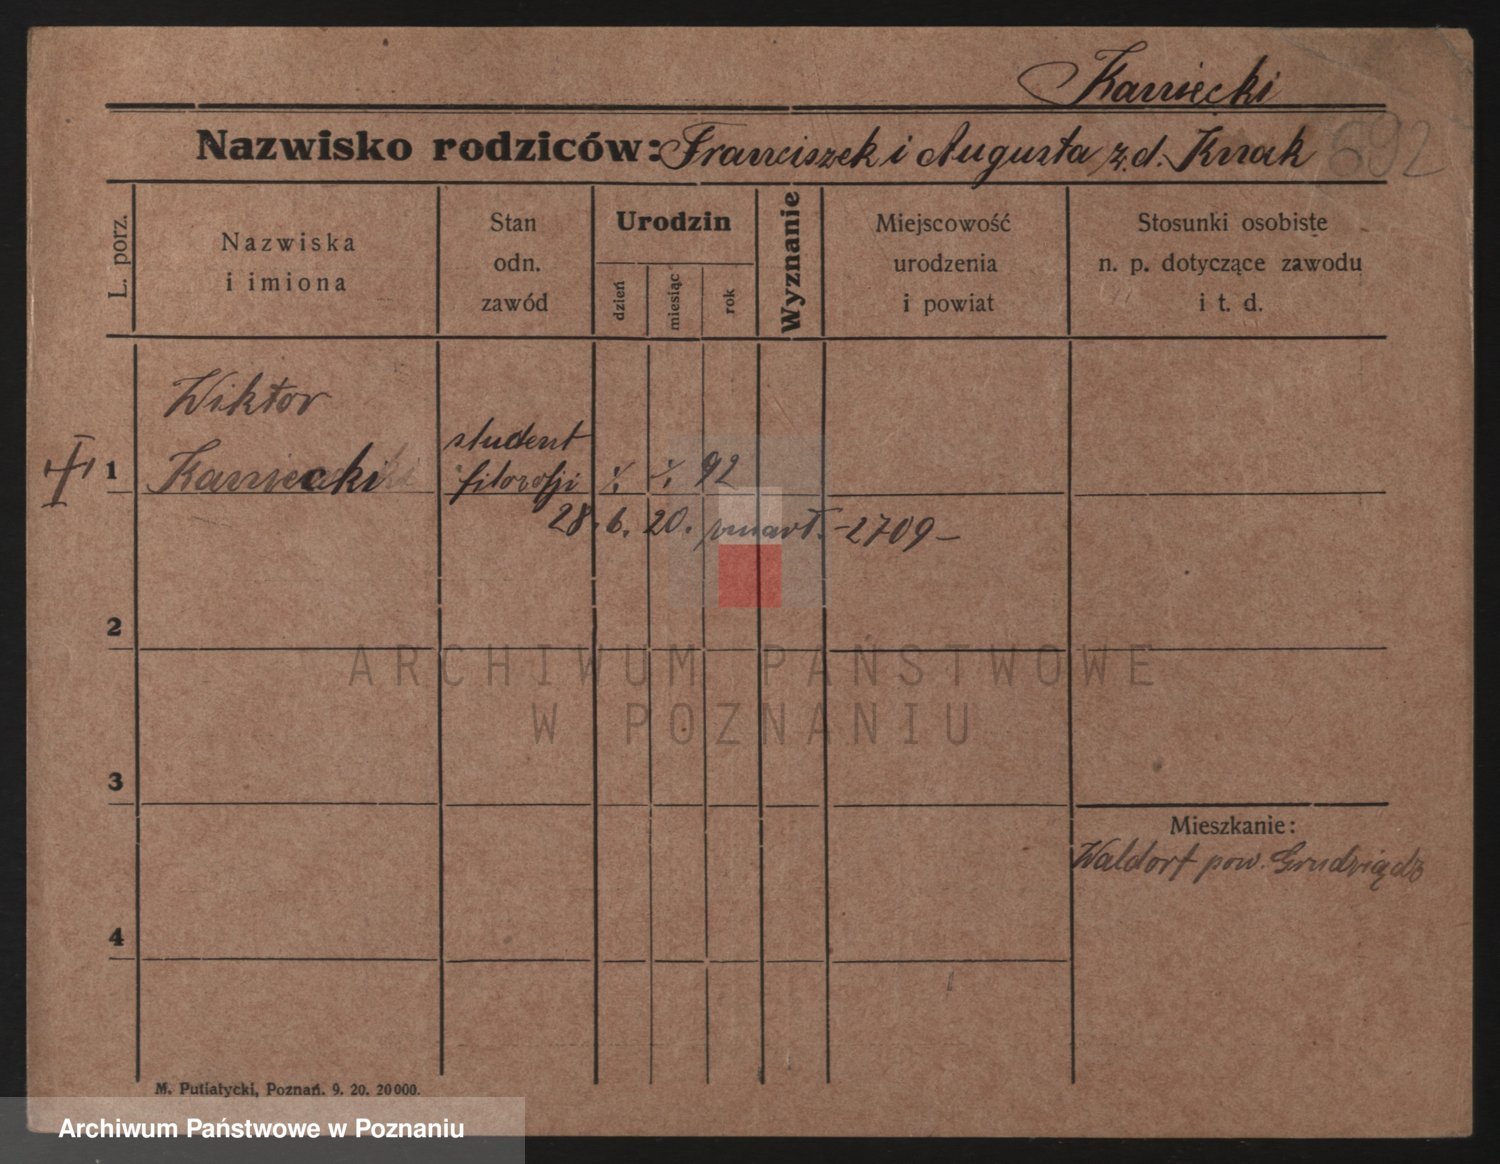 Kaniecki
Nazwisko rodziców: Franciszek i Augusta z.d. Knak
692
L. porz.
Nazwiska
i imiona
Stan
odn.
zawód
Urodzin
dzień
miesiąc
rok
Wyznanie
Miejscowość
urodzenia
i powiat
Stosunki osobiste
n. p. dotyczące zawodu
i t. d.
Wiktor
1 Kaniecki
student
filozofji
·/. ·/. 92
28. 6. 20. zmarł. -2709-
2
ARCHIWUM PAŃSTWOWE
W POZNANIU
3
Mieszkanie:
Waldorf pow. Grudziądz
4
M. Putiatycki, Poznań. 9. 20. 20000.
Archiwum Państwowe w Poznaniu